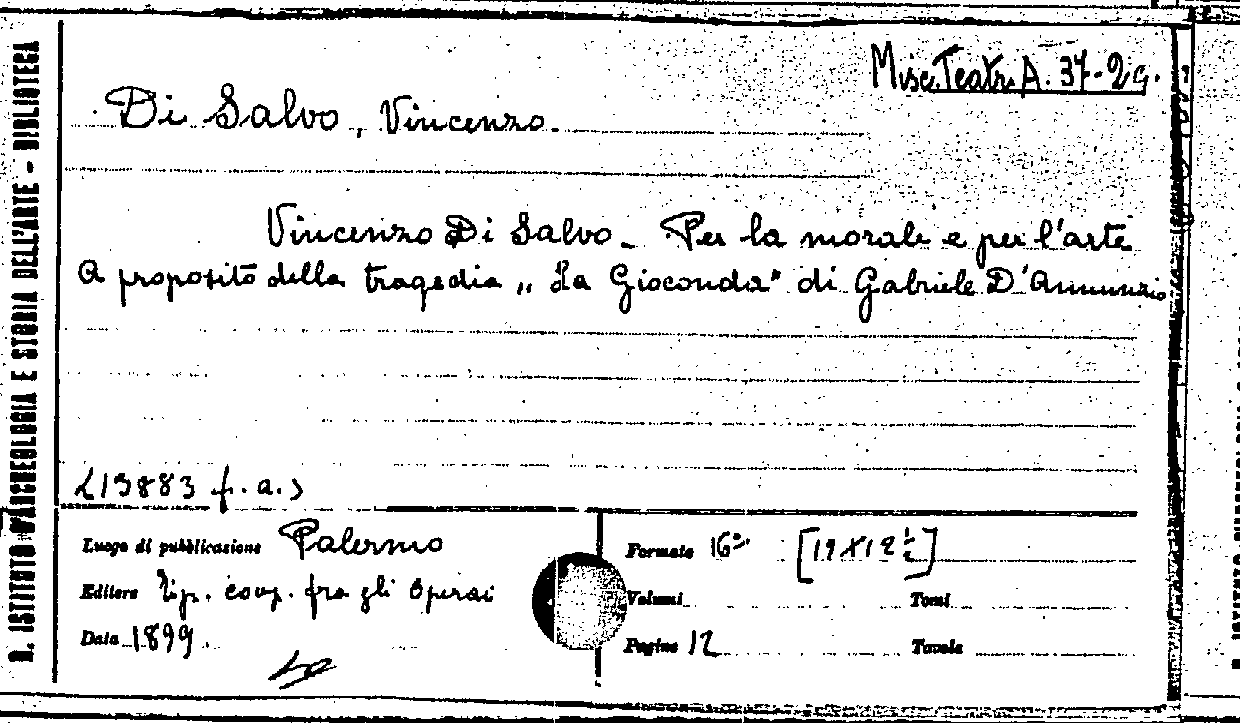 R. ISTITUTO D'ARCHEOLOGIA E STORIA DELL'ARTE - BIBLIOTECA
Misc. Teatr. A. 37-29.
Di Salvo, Vincenzo.
Vincenzo Di Salvo - Per la morale e per l'arte
A proposito della tragedia „La Gioconda" di Gabriele D'Annunzio
(13883 f. a.)
Luogo di pubblicazione Palermo
Editore Tip. coop. fra gli Operai
Data 1899.
Formato 16° [19 X 12 ½]
Volumi Tomi
Pagine 12 Tavole